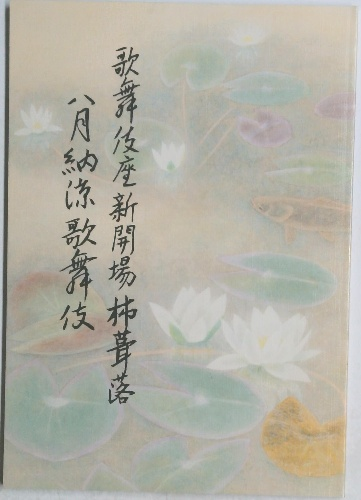 歌舞伎座新開場杮葺落
八月納涼歌舞伎